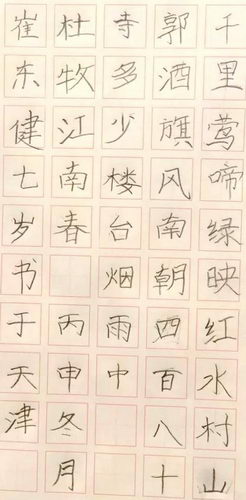 千里莺啼绿映红水村山
郭酒旗风南朝四百八十
寺多少楼台烟雨中
杜牧江南春 丙申冬月
崔东健七岁书于天津